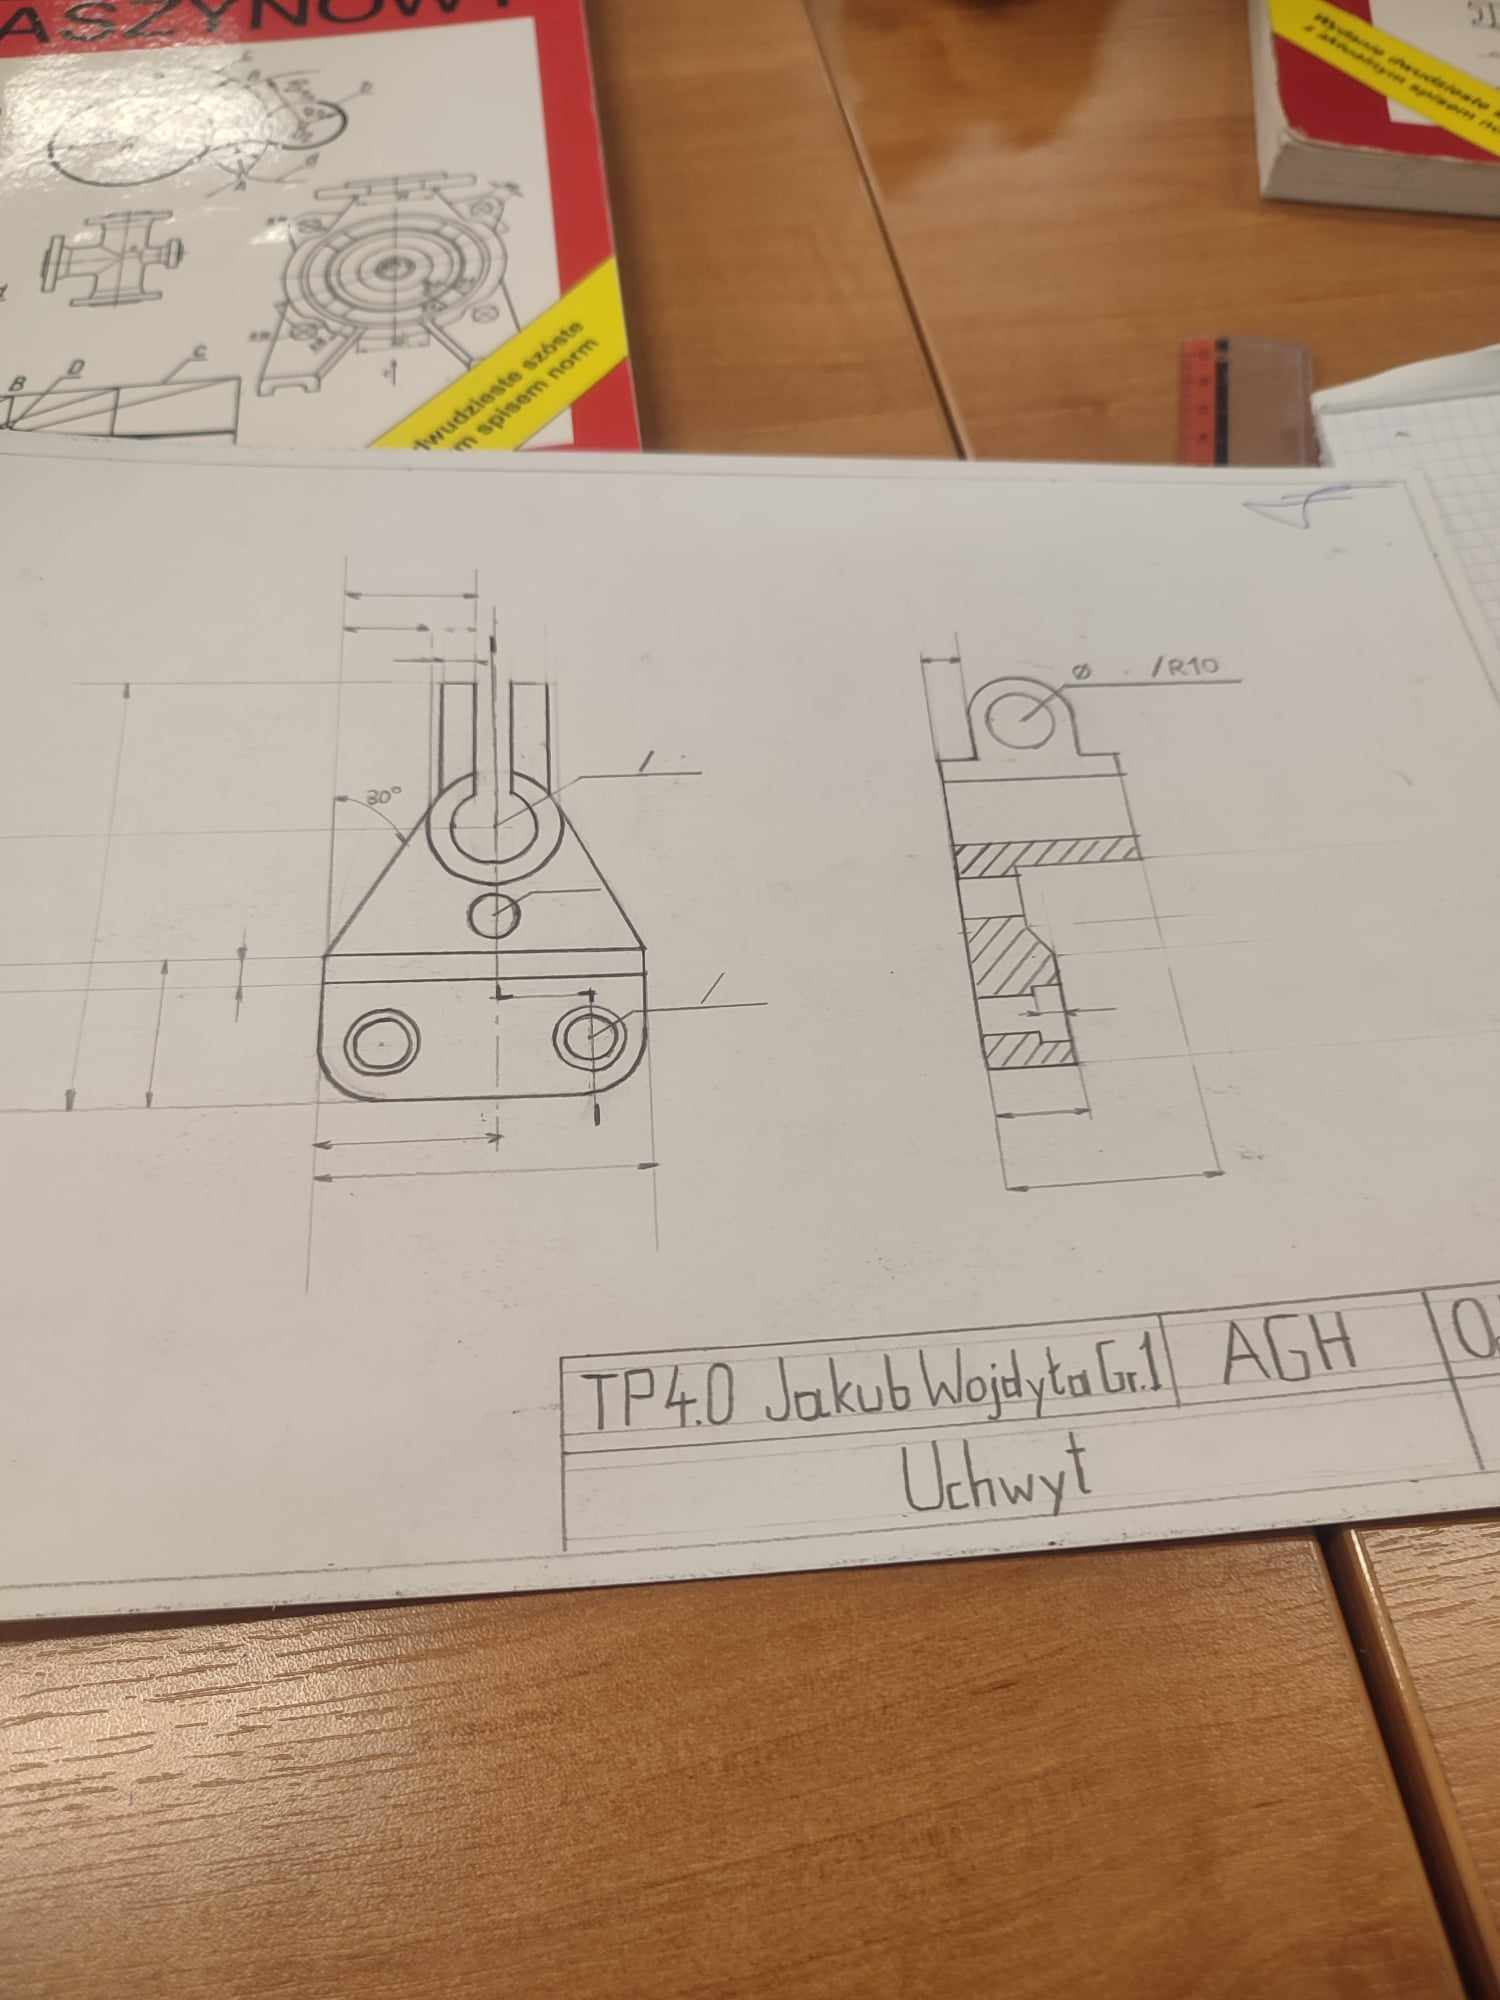 ASZYNOWY
C
D
B
dwudzieste szóste
m spisem norm
Wydanie dwudzieste
z aktualnym spisem no
30°
Ø /R10
TP4.0 Jakub Wojdyła Gr.1
AGH
Uchwyt